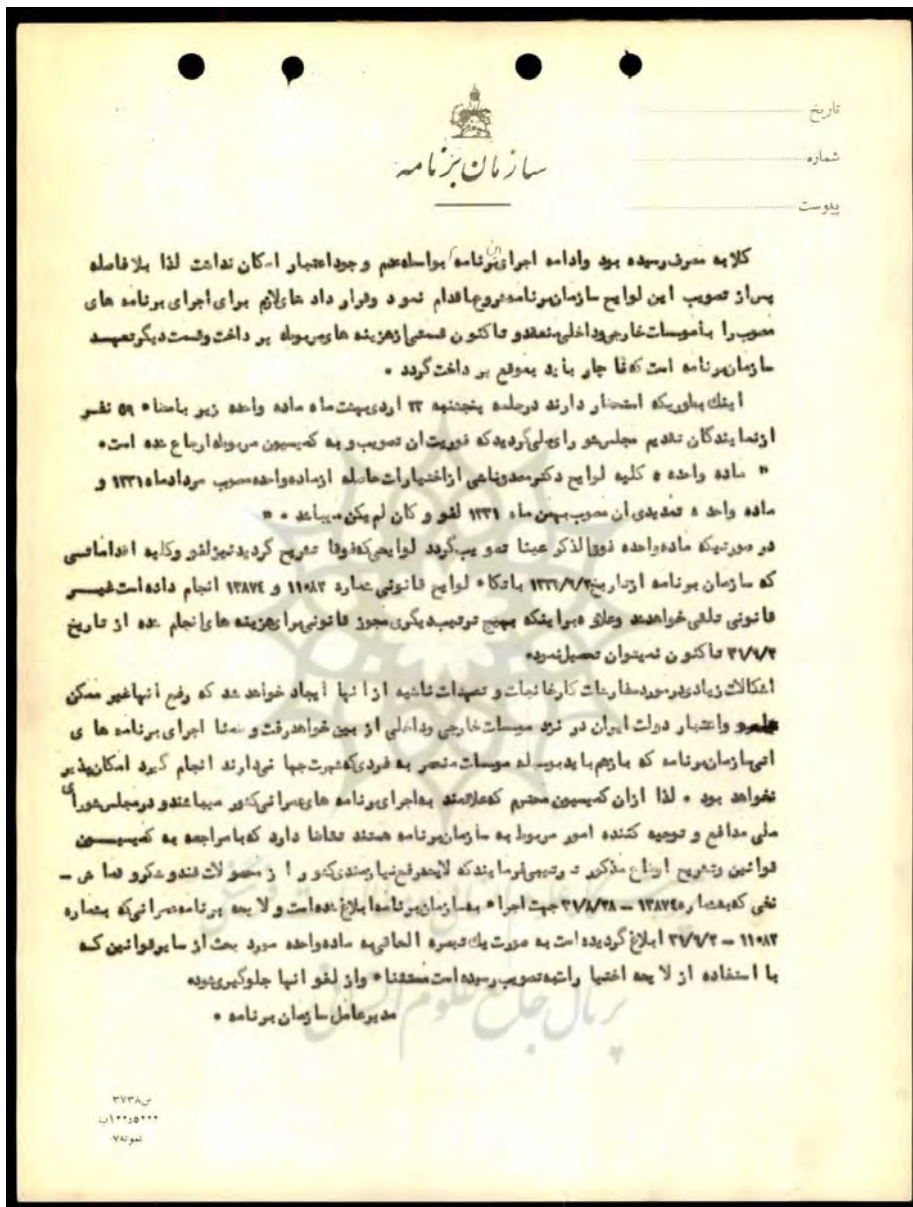 تاریخ
شماره
پیوست
سازمان برنامه
کلا به مصرف رسیده بود وادامه اجرای این برنامه بواسطه عدم وجود اعتبار امکان نداشت لذا بلافاصله
پس از تصویب این لوایح سازمان برنامه شروع باقدام نمود وقرار داد های لازم برای اجرای برنامه های
مصوب را با موسسات خارجی وداخلی منعقد و تاکنون قسمتی از هزینه های مربوطه پر داخت وقسمت دیگر تعهـد
سازمان برنامه است که نا چار باید بموقع پر داخت گردد ۰
اینك بطوریکه استحضار دارند درجلسه پنجشنبه ۲۳ اردیبهشت ماه ماده واحده زیر بامضاء ۵۹ نفـر
از نمایندگان تقدیم مجلس شو رای ملی گردید که فوریت ان تصویب و به کمیسیون مربوطه ارجاع شده است۰
" ماده واحده ه کلیه لوایح دکتر مصدق ناشی از اختیارات حاصله از ماده واحده مصوب مردادماه ۱۳۳۱ و
ماده واحد ه تمدیدی ان مصوب بهمن ماه ۱۳۳۱ لغو و کان لم یکن میباشد ۰ "
در صورتیکه ماده واحده فوق الذکر عینا تصو یب گردد لوایحی که فوقا تشریح گردید نیز لغو وکلیه اقداماتـی
که سازمان برنامه از تاریخ ۱۳۳۱/۶/۲ باتکاء لوایح قانونی شماره ۱۱۰۸۳ و ۱۳۸۷۴ انجام داده است غیـــر
قانونی تلقی خواهد شد وعلاو ه براینکه بهیچ ترتیب دیگری مجوز قانونی برای هزینه های انجام شده از تاریخ
۳۱/۶/۲ تاکنو ن نمیتوان تحصیل نمود۰
اشکالات زیادی در مورد سفارشات کارخانجات و تعهدات ناشیه از ا نها ایجاد خواهد شد که رفع انها غیر ممکن
واعتبار دولت ایران در نزد موسسات خارجی وداخلی از بین خواهد رفت و ضمنا اجرای برنامه ها ی
اتی سازمان برنامه که بازهم باید بوسیله موسسات منحصر به فردی که شهرت جها نی دارند انجام گیرد امکان پذیر
نخواهد بود ۰ لذا ازان کمیسیون محترم که علاقمند به اجرای برنامه های عمرانی کشور میباشند و در مجلس شورای
ملی مدافع و توجیه کننده امور مربوط به سازمان برنامه هستند تقاضا دارد که با مراجعه به کمیســـون
قوانین وتشریح اوضاع مذکور تر تیبی فرمایند که لایحه رفع نیازمندی کشو ر ا ز محصو لات قند و شکر و قما ش –
نخی که بشماره ۱۳۸۷۴ – ۳۱/۸/۲۸ جهت اجراء به سازمان برنامه ابلاغ شده است و لا یحه برنامه عمرانی که بشماره
۱۱۰۸۳ – ۳۱/۶/۲ ابلاغ گردیده است به صورت یك تبصره الحاقی به ماده واحده مورد بحث از سایر قوانین کـه
با استفاده از لا یحه اختیا رات به تصویب رسیده است مستثناء واز لغو انها جلوگیری شود۰
مدیر عامل سازمان برنامه ۰
پرتال جامع علوم انسانی
س۳۷۳۸
نمونه۷